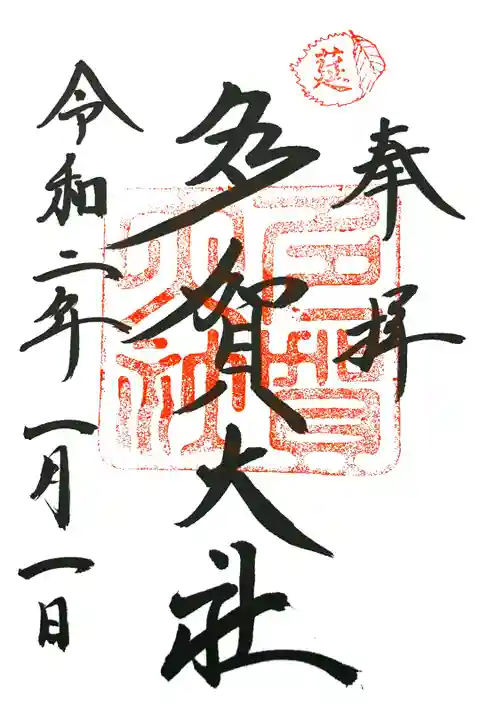 莚
奉拝
多賀大社
多賀大社
令和二年一月一日